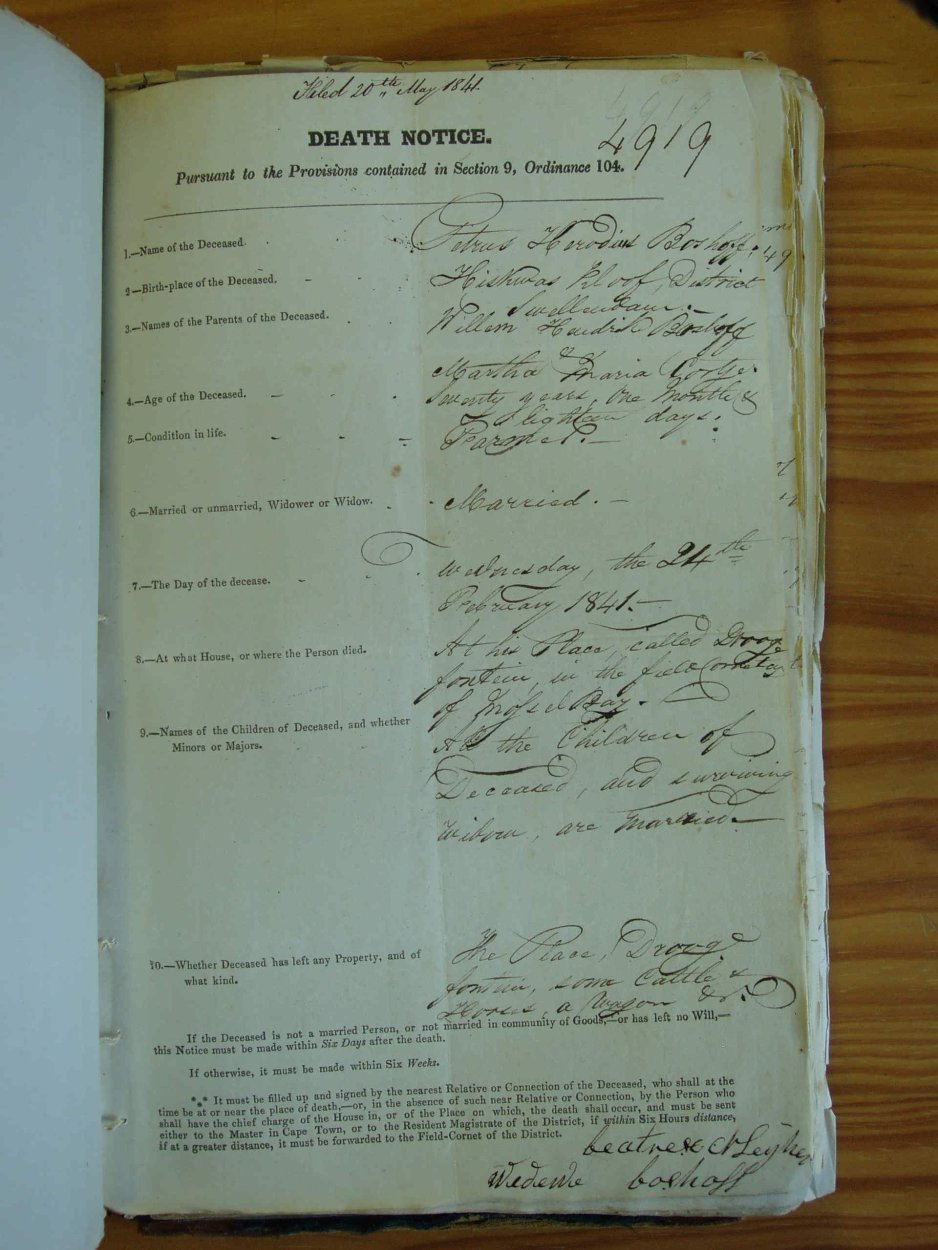 Filed 20th May 1841.
DEATH NOTICE.
4919
Pursuant to the Provisions contained in Section 9, Ordinance 104.
1.—Name of the Deceased.
Petrus Herodius Boshoff
2.—Birth-place of the Deceased.
Hiskwas kloof, District
Swellendam.—
3.—Names of the Parents of the Deceased.
Willem Hendrik Boshoff
&
Martha Maria
4.—Age of the Deceased.
years, One Month &
Eighteen days.
5.—Condition in life.
Farmer.—
6.—Married or unmarried, Widower or Widow.
Married.—
7.—The Day of the decease.
Wednesday, the 24th
February 1841.—
8.—At what House, or where the Person died.
At his Place, called Drooge
fontein, in the field Cornetcy
of Mossel Bay.—
9.—Names of the Children of Deceased, and whether
Minors or Majors.
All the Children of
Deceased, and surviving
Widow, are Married.—
10.—Whether Deceased has left any Property, and of
what kind.
The Place, Drooge
fontein, some Cattle &
Horses, a Wagon &c.
If the Deceased is not a married Person, or not married in community of Goods,—or has left no Will,—
this Notice must be made within Six Days after the death.
If otherwise, it must be made within Six Weeks.
*** It must be filled up and signed by the nearest Relative or Connection of the Deceased, who shall at the
time be at or near the place of death,—or, in the absence of such near Relative or Connection, by the Person who
shall have the chief charge of the House in, or of the Place on which, the death shall occur, and must be sent
either to the Master in Cape Town, or to the Resident Magistrate of the District, if within Six Hours distance,
if at a greater distance, it must be forwarded to the Field-Cornet of the District.
beatrese
Wedewe boshoff